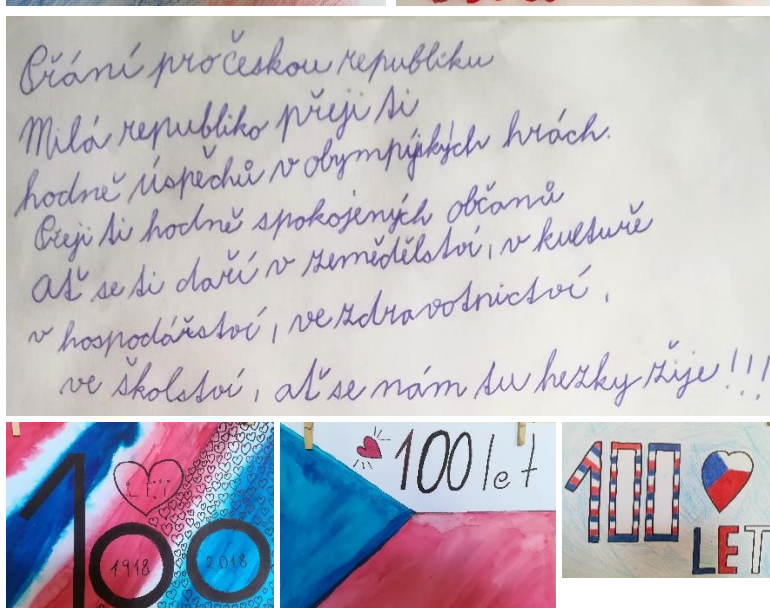 Přání pro českou republiku
Milá republiko přeji ti
hodně úspěchů v olympijských hrách.
Přeji ti hodně spokojených občanů
Ať se ti daří v zemědělství, v kultuře
v hospodářství, ve zdravotnictví,
ve školství, ať se nám tu hezky žije!!!
LET
100
1918 2018
100 let
100
LET